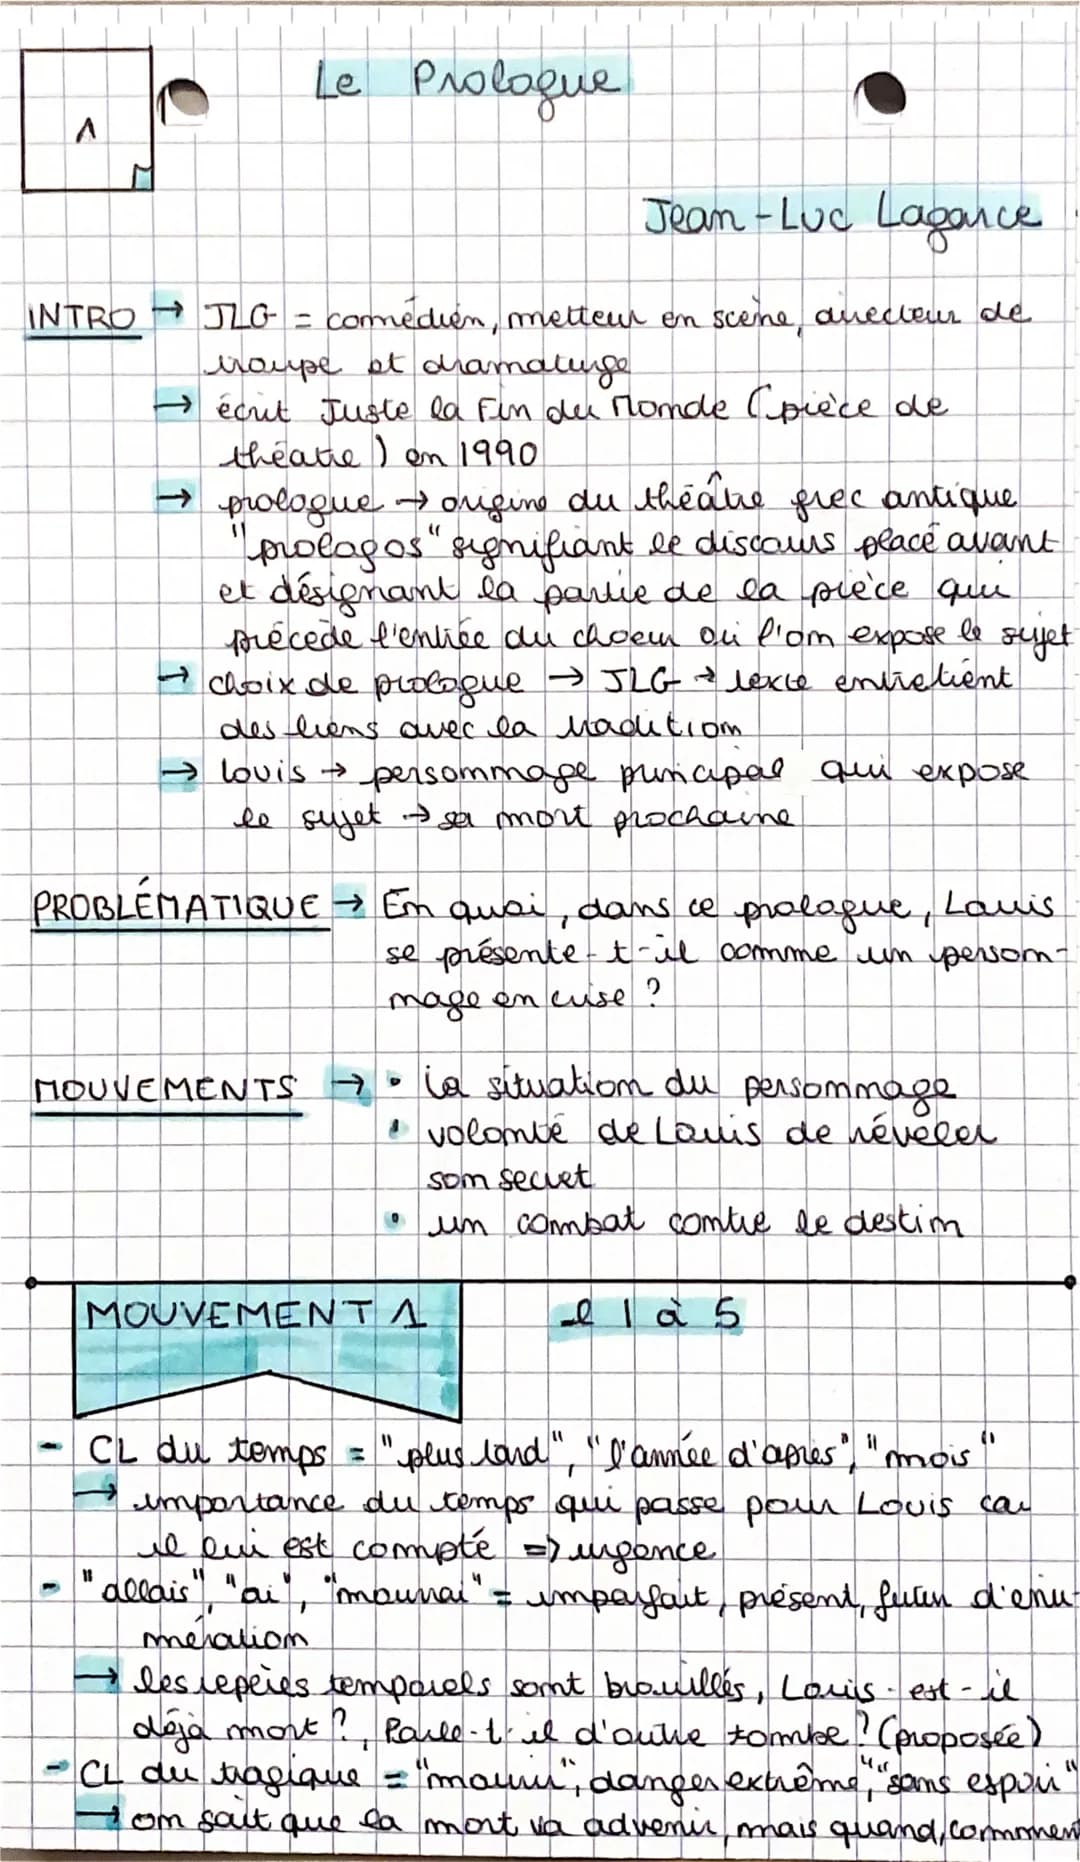 1
Le Prologue
Jean-Luc Lagarce
INTRO → JLG = comédien, metteur en scène, directeur de
troupe et dramaturge
→ écrit Juste la Fin du Monde (pièce de
théatre) en 1990
→ prologue → origine du théâtre grec antique
"prolagos" signifiant le discours placé avant
et désignant la partie de la pièce qui
précède l'entrée du choeur où l'on expose le sujet
→ choix de prologue → JLG → texte entretient
des liens avec la tradition
→ Louis → personnage principal qui expose
le sujet → sa mort prochaine
PROBLÉMATIQUE → En quoi, dans ce prologue, Louis
se présente-t-il comme un person-
nage en crise ?
MOUVEMENTS → • la situation du personnage
• volonté de Louis de révéler
son secret
• un combat contre le destin
MOUVEMENT 1 l 1 à 5
- CL du temps = "plus tard", "l'année d'après", "mois"
→ importance du temps qui passe pour Louis car
il lui est compté => urgence
- "allais", "ai", "mourrai" = imparfait, présent, futur d'énu-
mération
→ les repères temporels sont brouillés, Louis-est-il
déjà mort ?, Parle-t-il d'outre tombe ? (proposée)
- CL du tragique = "mourir", danger extrême", "sans espoir"
→ on sait que la mort va advenir, mais quand, comment